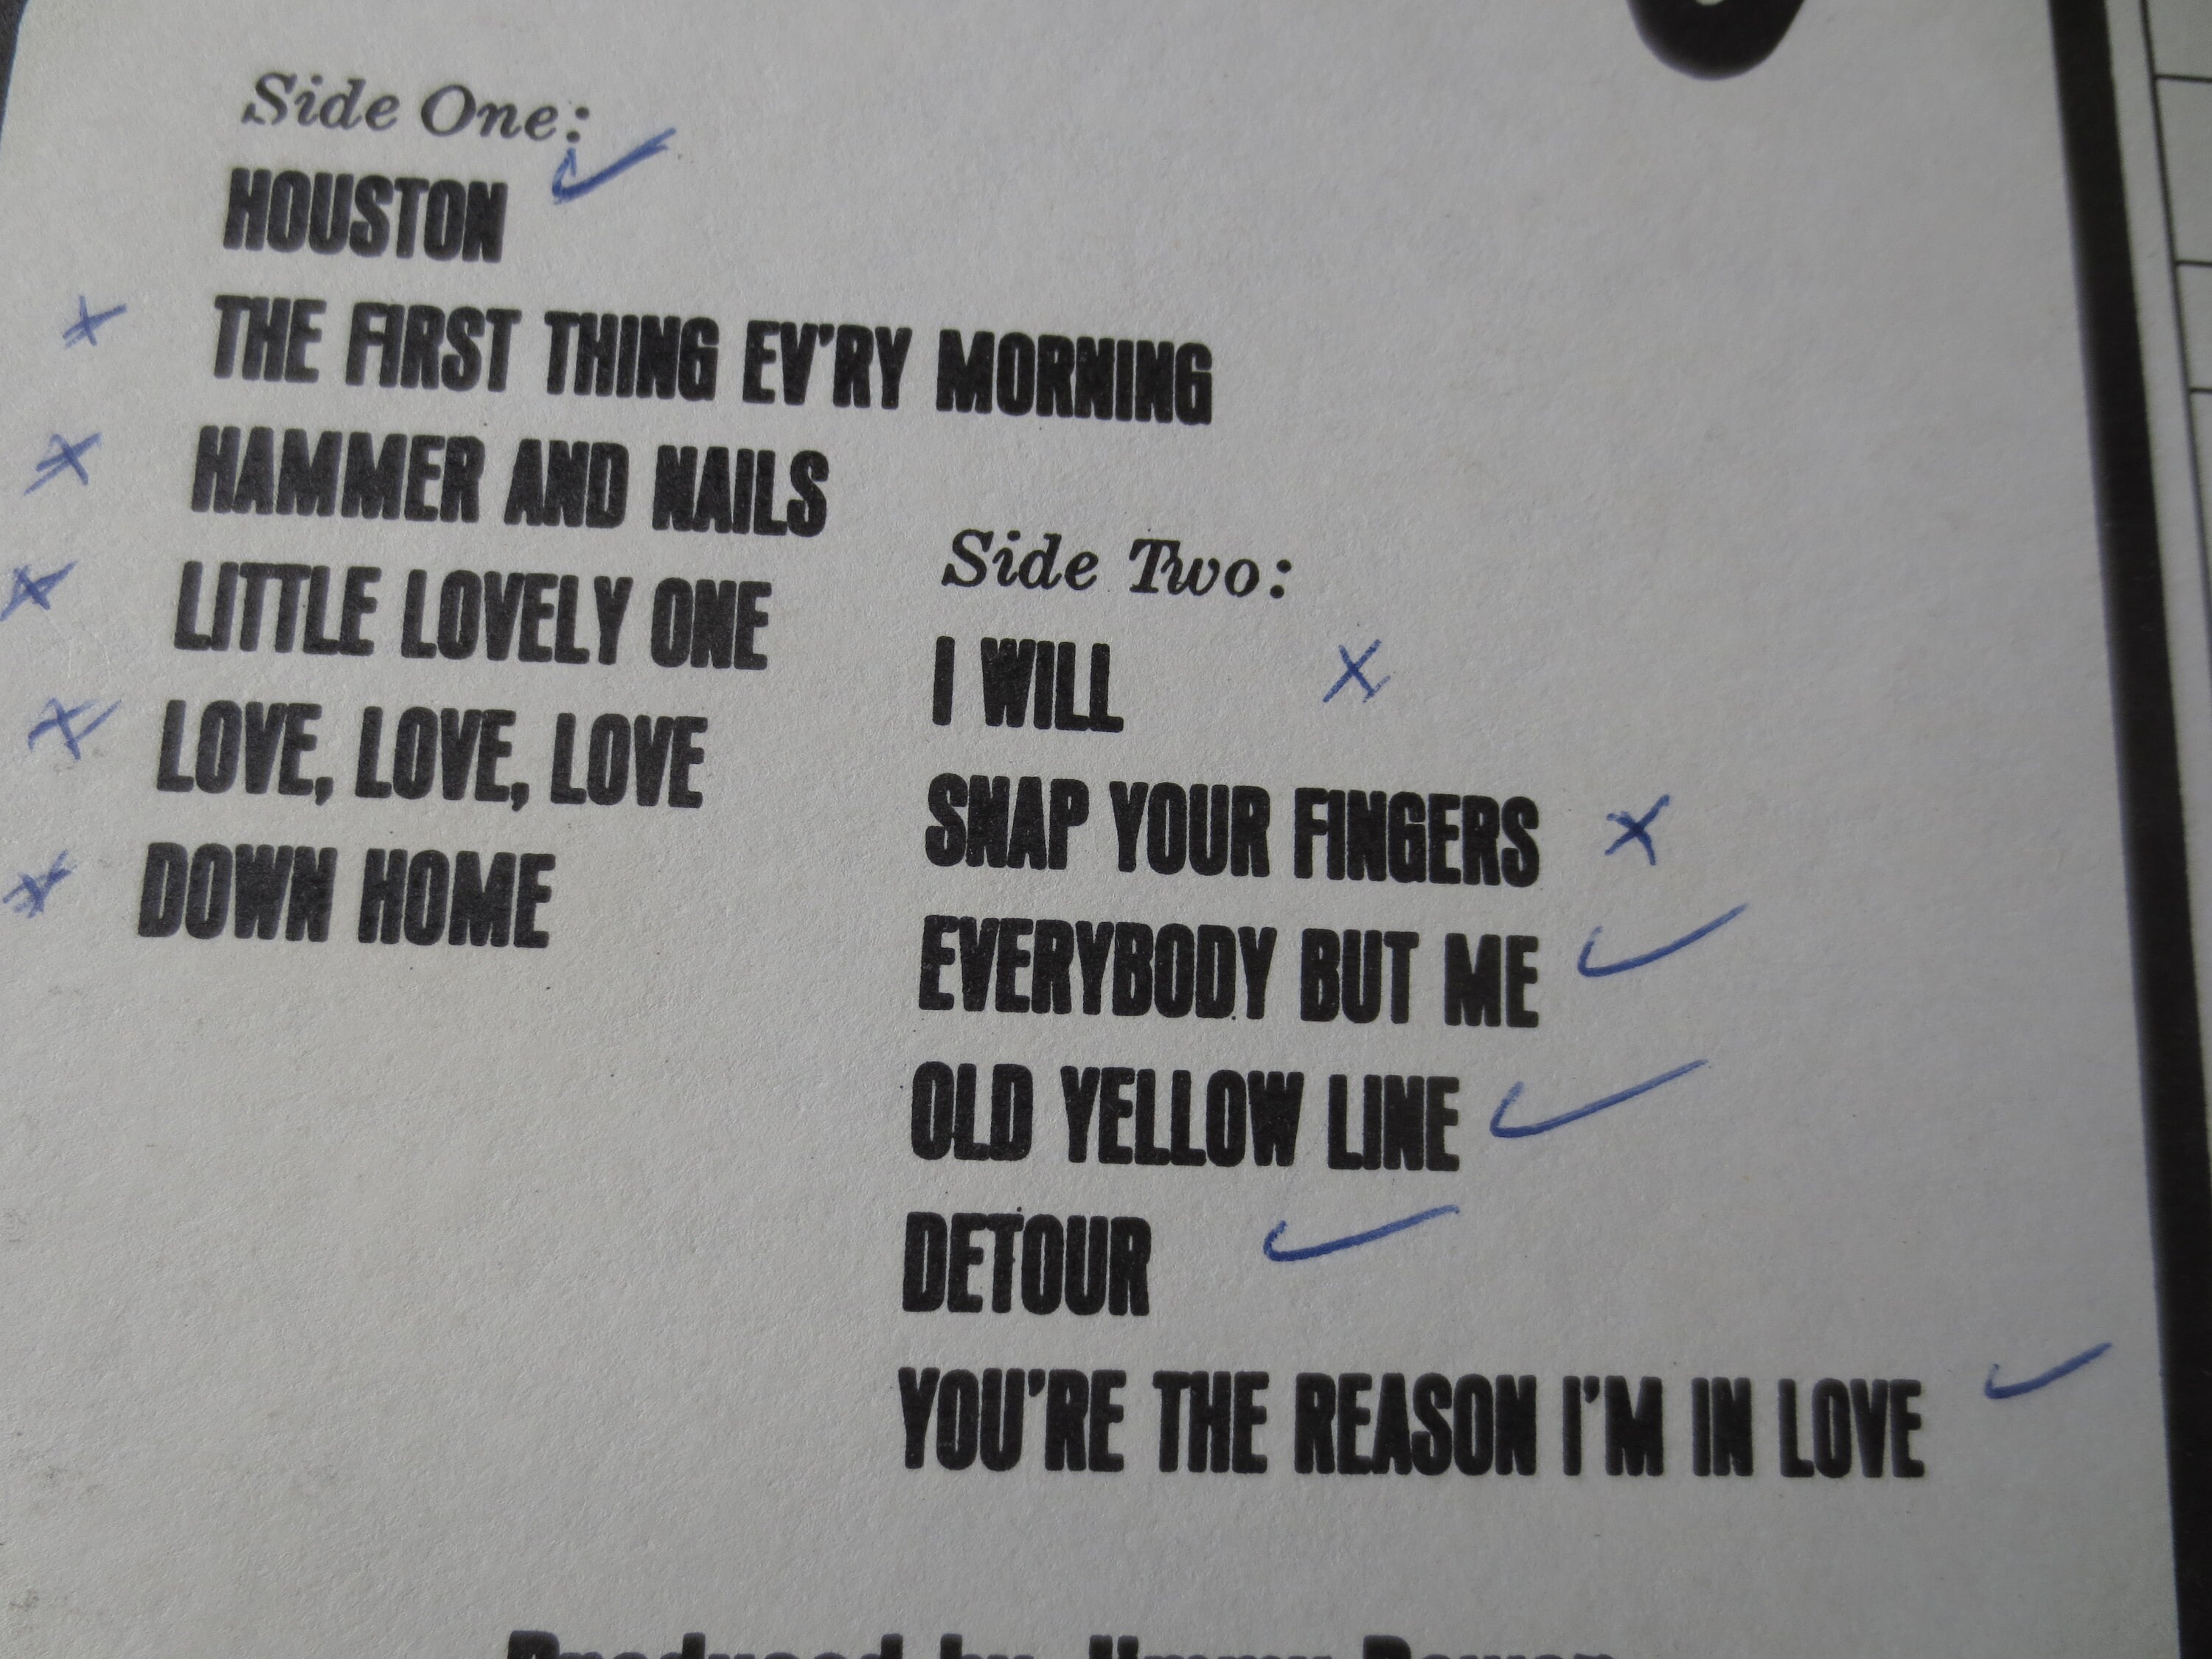 Side One:
HOUSTON ✓
x THE FIRST THING EV'RY MORNING
x HAMMER AND NAILS
x LITTLE LOVELY ONE
x LOVE, LOVE, LOVE
x DOWN HOME
Side Two:
I WILL x
SNAP YOUR FINGERS x
EVERYBODY BUT ME ✓
OLD YELLOW LINE ✓
DETOUR ✓
YOU'RE THE REASON I'M IN LOVE ✓
Produced by Jimmy Bowen